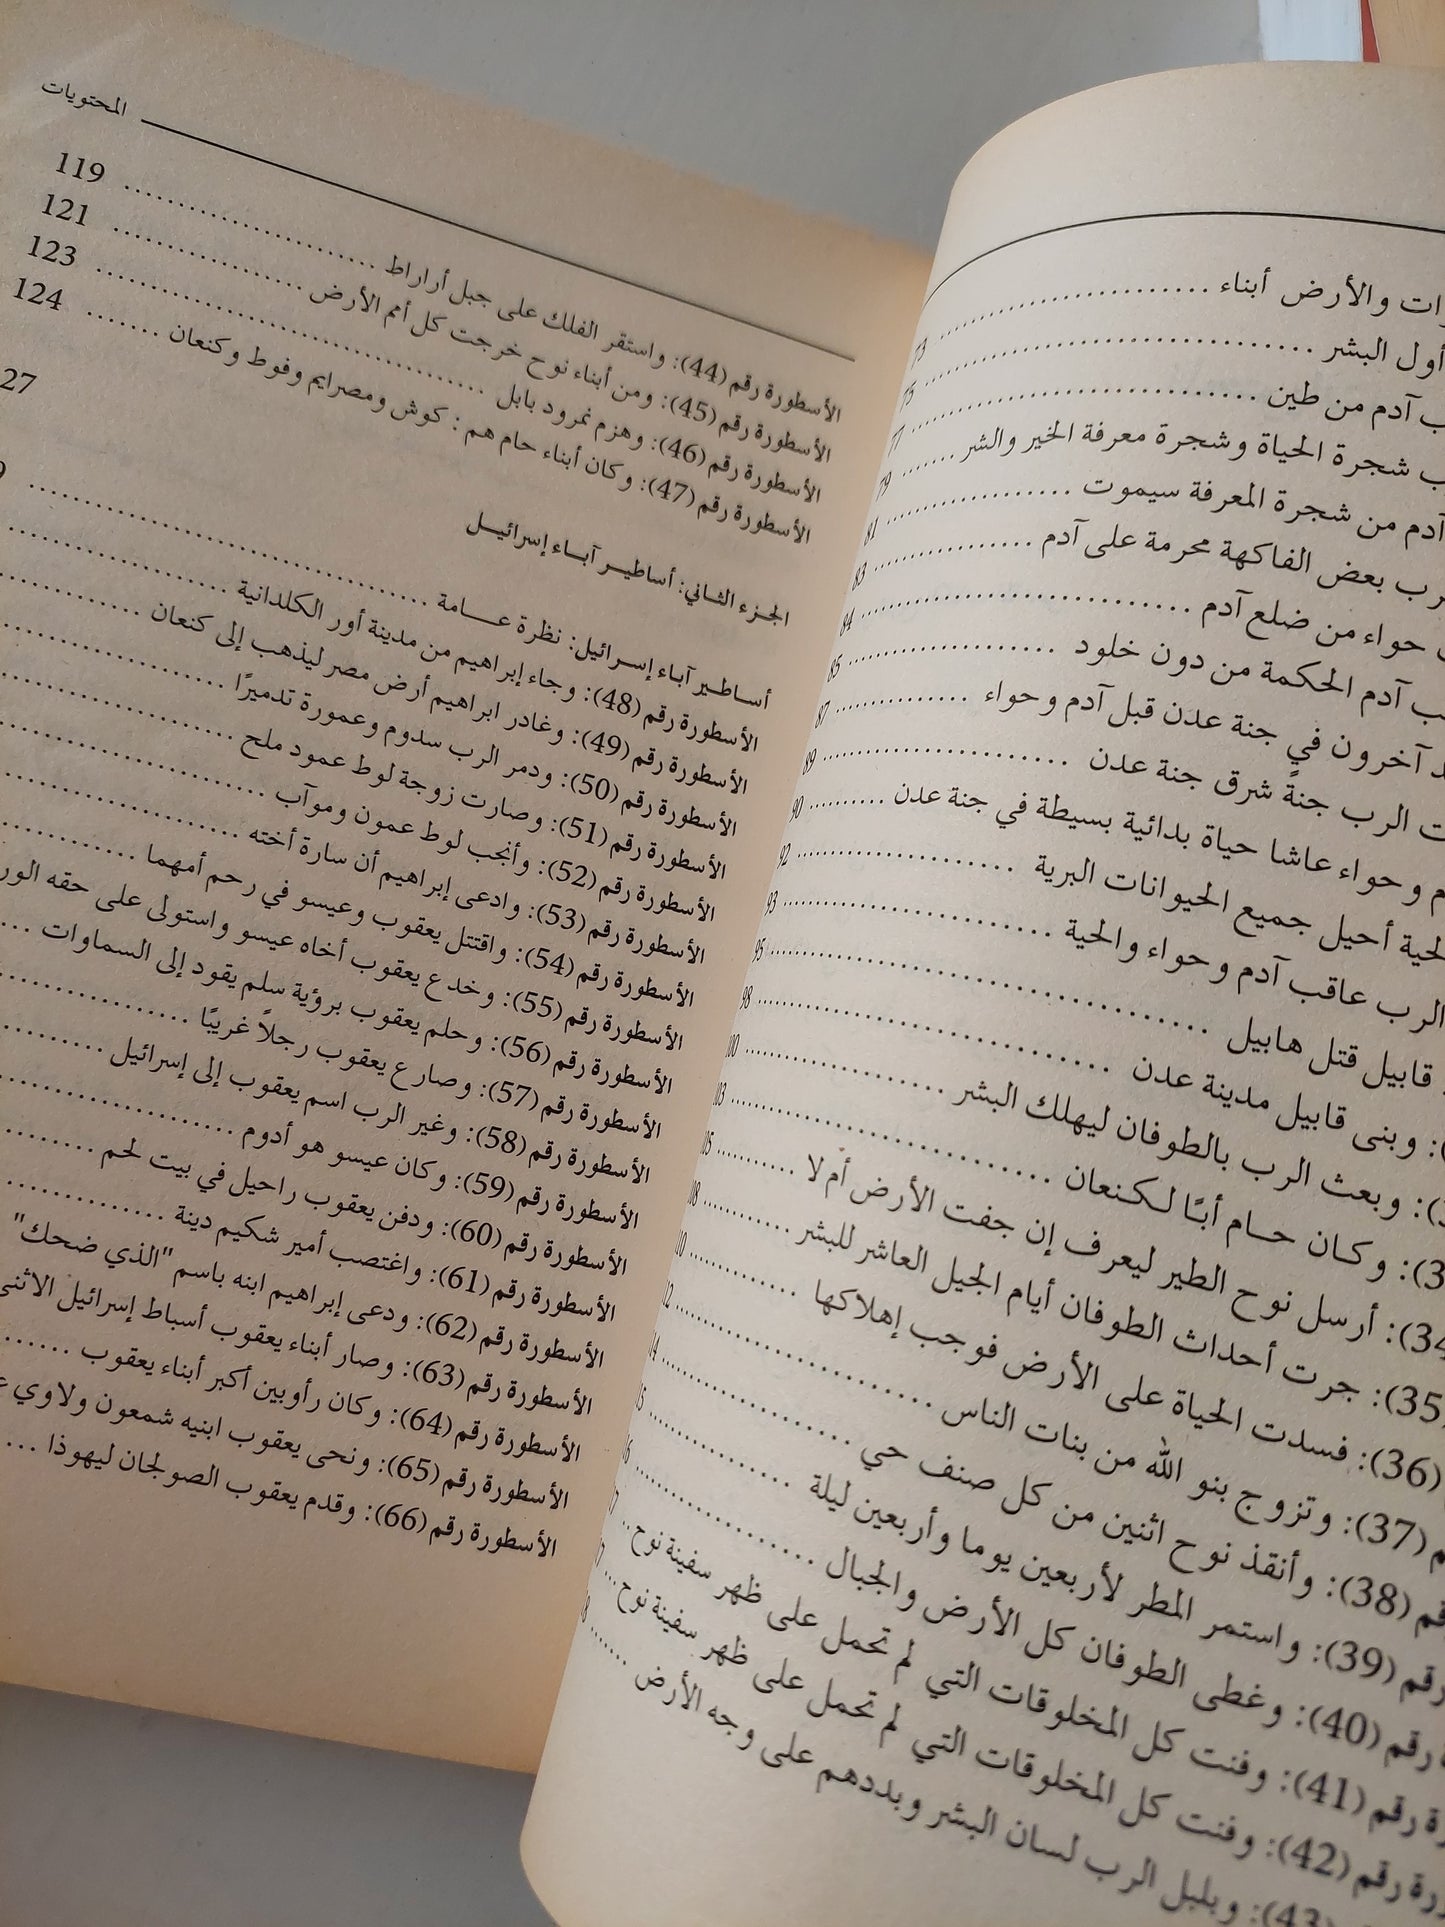 ات والأرض أبناء
أول البشر
آدم من طين
شجرة الحياة وشجرة معرفة الخير والشر
آدم من شجرة المعرفة سيموت
رب بعض الفاكهة محرمة على آدم
حواء من ضلع آدم
ب آدم الحكمة من دون خلود
آخرون في جنة عدن قبل آدم وحواء
ت الرب جنةً شرق جنة عدن
م وحواء عاشا حياة بدائية بسيطة في جنة عدن
لحية أحيل جميع الحيوانات البرية
الرب عاقب آدم وحواء والحية
قابيل قتل هابيل
): وبنى قابيل مدينة عدن
): وبعث الرب بالطوفان ليهلك البشر
): وكان حام أبًا لكنعان
34): أرسل نوح الطير ليعرف إن جفت الأرض أم لا
35): جرت أحداث الطوفان أيام الجيل العاشر للبشر
(36): فسدت الحياة على الأرض فوجب إهلاكها
م (37): وتزوج بنو الله من بنات الناس
قم (38): وأنقذ نوح اثنين من كل صنف حي
رقم (39): واستمر المطر لأربعين يوما وأربعين ليلة
رقم (40): وغطى الطوفان كل الأرض والجبال
ة رقم (41): وفنت كل المخلوقات التي لم تحمل على ظهر سفينة نوح
رة رقم (42): وفنت كل المخلوقات التي لم تحمل على ظهر سفينة نوح
43): وبلبل الرب لسان البشر وبددهم على وجه الأرض
المحتويات
الأسطورة رقم (44): واستقر الفلك على جبل أراراط ........ 119
الأسطورة رقم (45): ومن أبناء نوح خرجت كل أمم الأرض ........ 121
الأسطورة رقم (46): وهزم نمرود بابل ........ 123
الأسطورة رقم (47): وكان أبناء حام هم: كوش ومصرايم وفوط وكنعان ........ 124
الجزء الثاني: أساطير آباء إسرائيل 27
أساطير آباء إسرائيل: نظرة عامة
الأسطورة رقم (48): وجاء إبراهيم من مدينة أور الكلدانية
الأسطورة رقم (49): وغادر ابراهيم أرض مصر ليذهب إلى كنعان
الأسطورة رقم (50): ودمر الرب سدوم وعمورة تدميرًا
الأسطورة رقم (51): وصارت زوجة لوط عمود ملح
الأسطورة رقم (52): وأنجب لوط عمون وموآب
الأسطورة رقم (53): وادعى إبراهيم أن سارة أخته
الأسطورة رقم (54): واقتتل يعقوب وعيسو في رحم أمهما
الأسطورة رقم (55): وخدع يعقوب أخاه عيسو واستولى على حقه الور
الأسطورة رقم (56): وحلم يعقوب برؤية سلم يقود إلى السماوات
الأسطورة رقم (57): وصارع يعقوب رجلاً غريبًا
الأسطورة رقم (58): وغير الرب اسم يعقوب إلى إسرائيل
الأسطورة رقم (59): وكان عيسو هو أدوم
الأسطورة رقم (60): ودفن يعقوب راحيل في بيت لحم
الأسطورة رقم (61): واغتصب أمير شكيم دينة
الأسطورة رقم (62): ودعى إبراهيم ابنه باسم "الذي ضحك"
الأسطورة رقم (63): وصار أبناء يعقوب أسباط إسرائيل الاثنى
الأسطورة رقم (64): وكان رأوبين أكبر أبناء يعقوب
الأسطورة رقم (65): ونحى يعقوب ابنيه شمعون ولاوي
الأسطورة رقم (66): وقدم يعقوب الصولجان ليهوذا